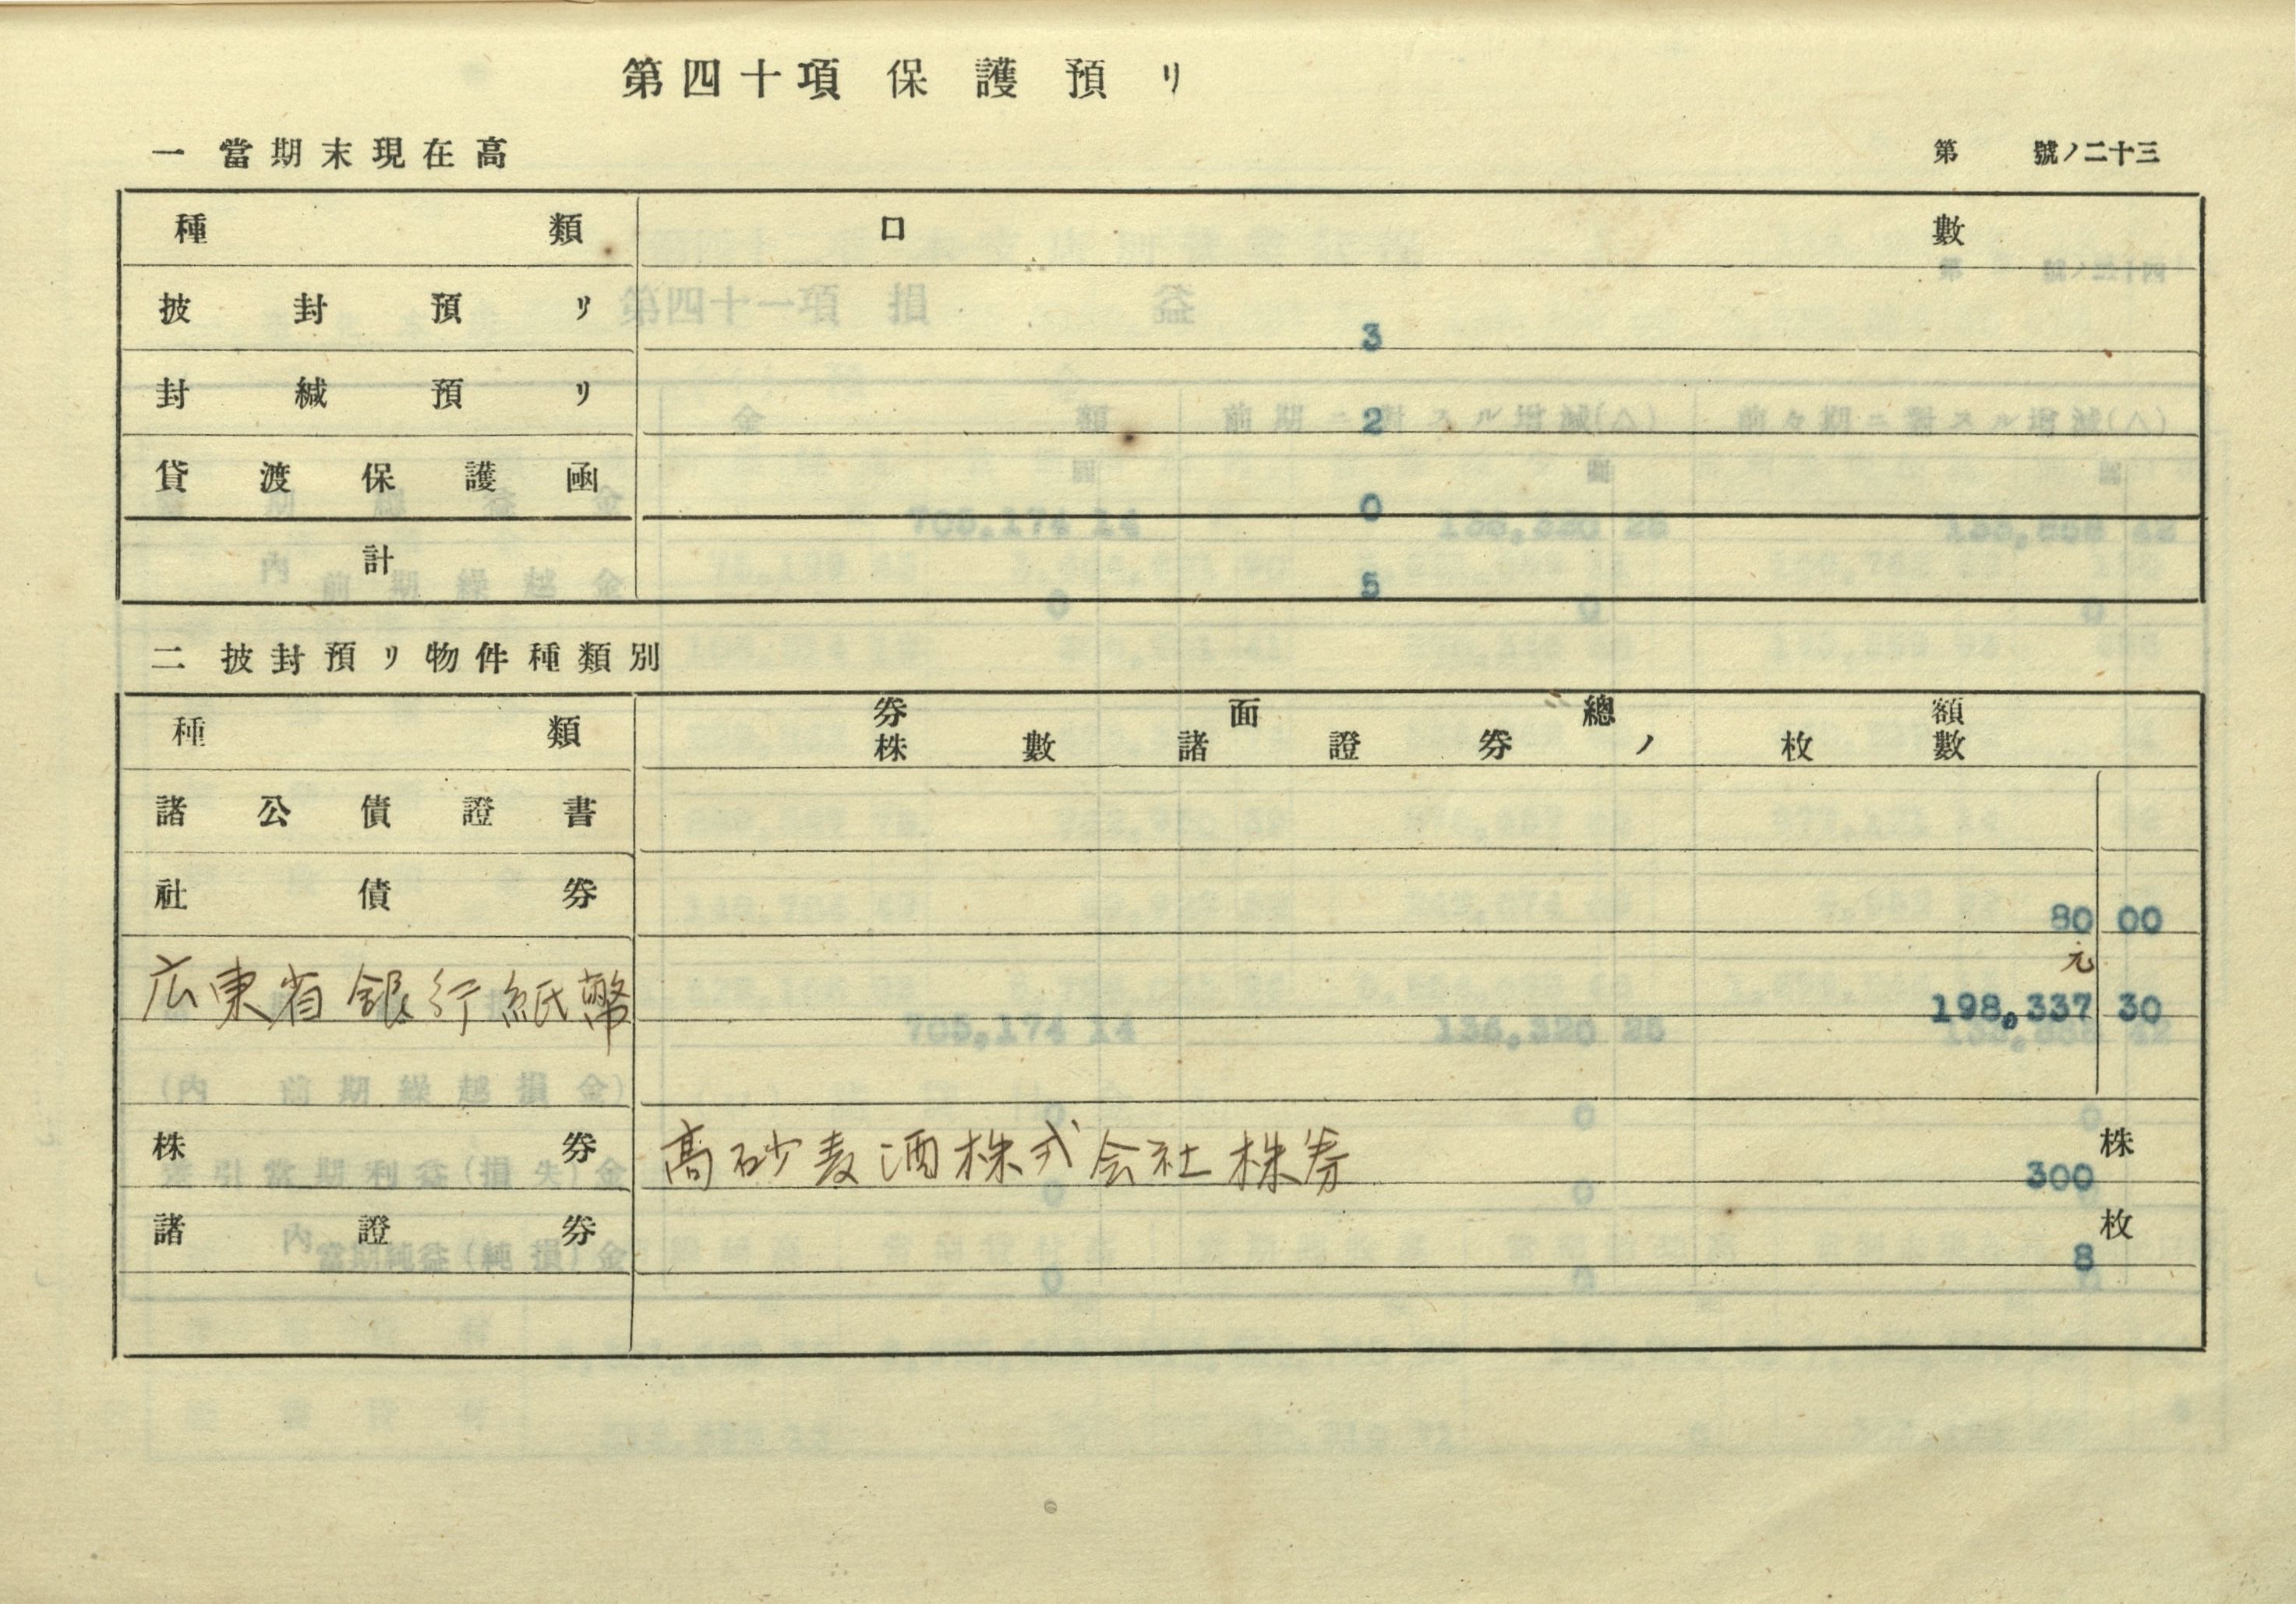 第四十項 保護預リ
一 當期末現在高
第 號ノ二十三
種類 口數
披封預リ 3
封緘預リ 2
貸渡保護函 0
計 5
二 披封預リ物件種類別
種類 券面總額
株數諸證券ノ枚數
諸公債證書
社債券 80 00
元
広東省銀行紙幣 198,337 30
株券 高砂麦酒株式会社株券 株 300
諸證券 枚 8